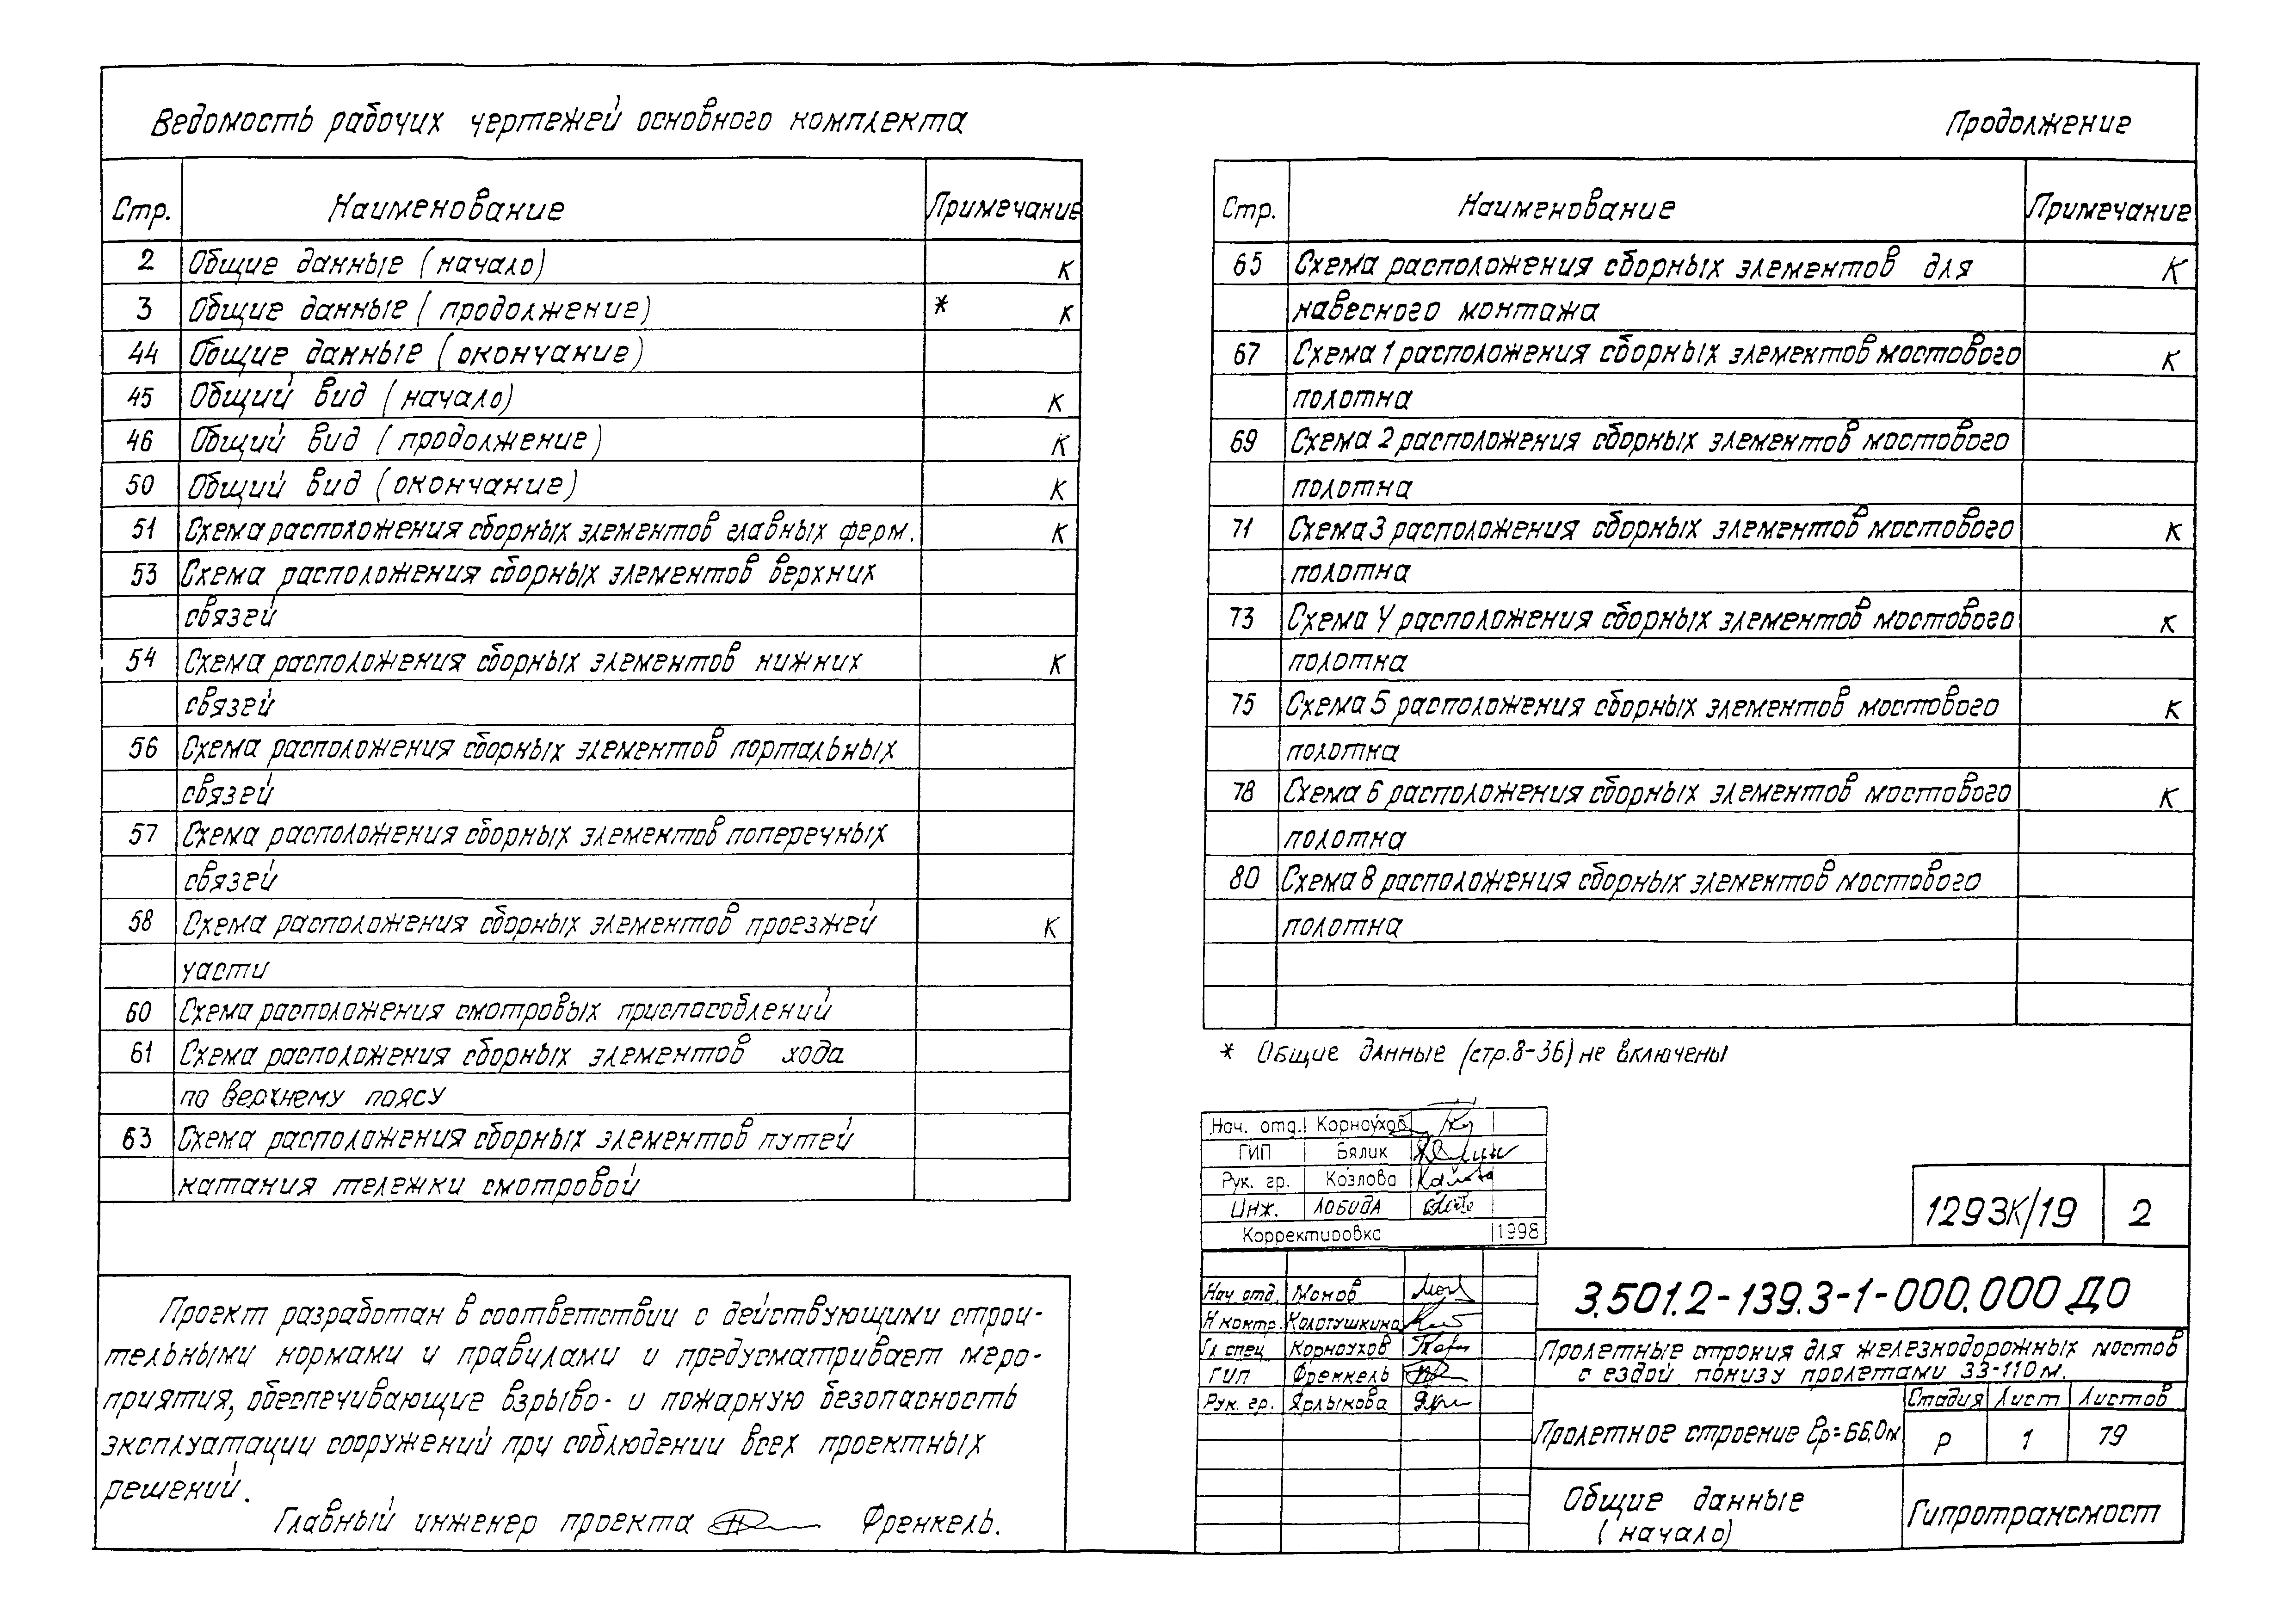 Ведомость рабочих чертежей основного комплекта
Продолжение
Стр. Наименование Примечание
2 Общие данные (начало) К
3 Общие данные (продолжение) * К
44 Общие данные (окончание)
45 Общий вид (начало) К
46 Общий вид (продолжение) К
50 Общий вид (окончание) К
51 Схема расположения сборных элементов главных ферм. К
53 Схема расположения сборных элементов верхних
связей
54 Схема расположения сборных элементов нижних К
связей
56 Схема расположения сборных элементов портальных
связей
57 Схема расположения сборных элементов поперечных
связей
58 Схема расположения сборных элементов проезжей К
части
60 Схема расположения смотровых приспособлений
61 Схема расположения сборных элементов хода
по верхнему поясу
63 Схема расположения сборных элементов путей
катания тележки смотровой
Стр. Наименование Примечание
65 Схема расположения сборных элементов для К
навесного монтажа
67 Схема 1 расположения сборных элементов мостового К
полотна
69 Схема 2 расположения сборных элементов мостового
полотна
71 Схема 3 расположения сборных элементов мостового К
полотна
73 Схема 4 расположения сборных элементов мостового К
полотна
75 Схема 5 расположения сборных элементов мостового К
полотна
78 Схема 6 расположения сборных элементов мостового К
полотна
80 Схема 8 расположения сборных элементов мостового
полотна
* Общие данные (стр.8-36) не включены
Проект разработан в соответствии с действующими строи-
тельными нормами и правилами и предусматривает меро-
приятия, обеспечивающие взрыво- и пожарную безопасность
эксплуатации сооружений при соблюдении всех проектных
решений.
Главный инженер проекта Френкель.
Нач. отд. Корноухов
ГИП Бялик
Рук. гр. Козлова
Инж. Лобида
Корректировка 1998
1293К/19 2
Нач отд. Монов
Н контр. Колотушкина
Гл спец Корноухов
ГИП Френкель
Рук. гр. Ярлыкова
3.501.2-139.3-1-000.000 ДО
Пролетные строния для железнодорожных мостов
с ездой понизу пролетами 33-110 м.
Пролетное строение ℓр=66,0м
Стадия Лист Листов
Р 1 79
Общие данные
(начало)
Гипротрансмост